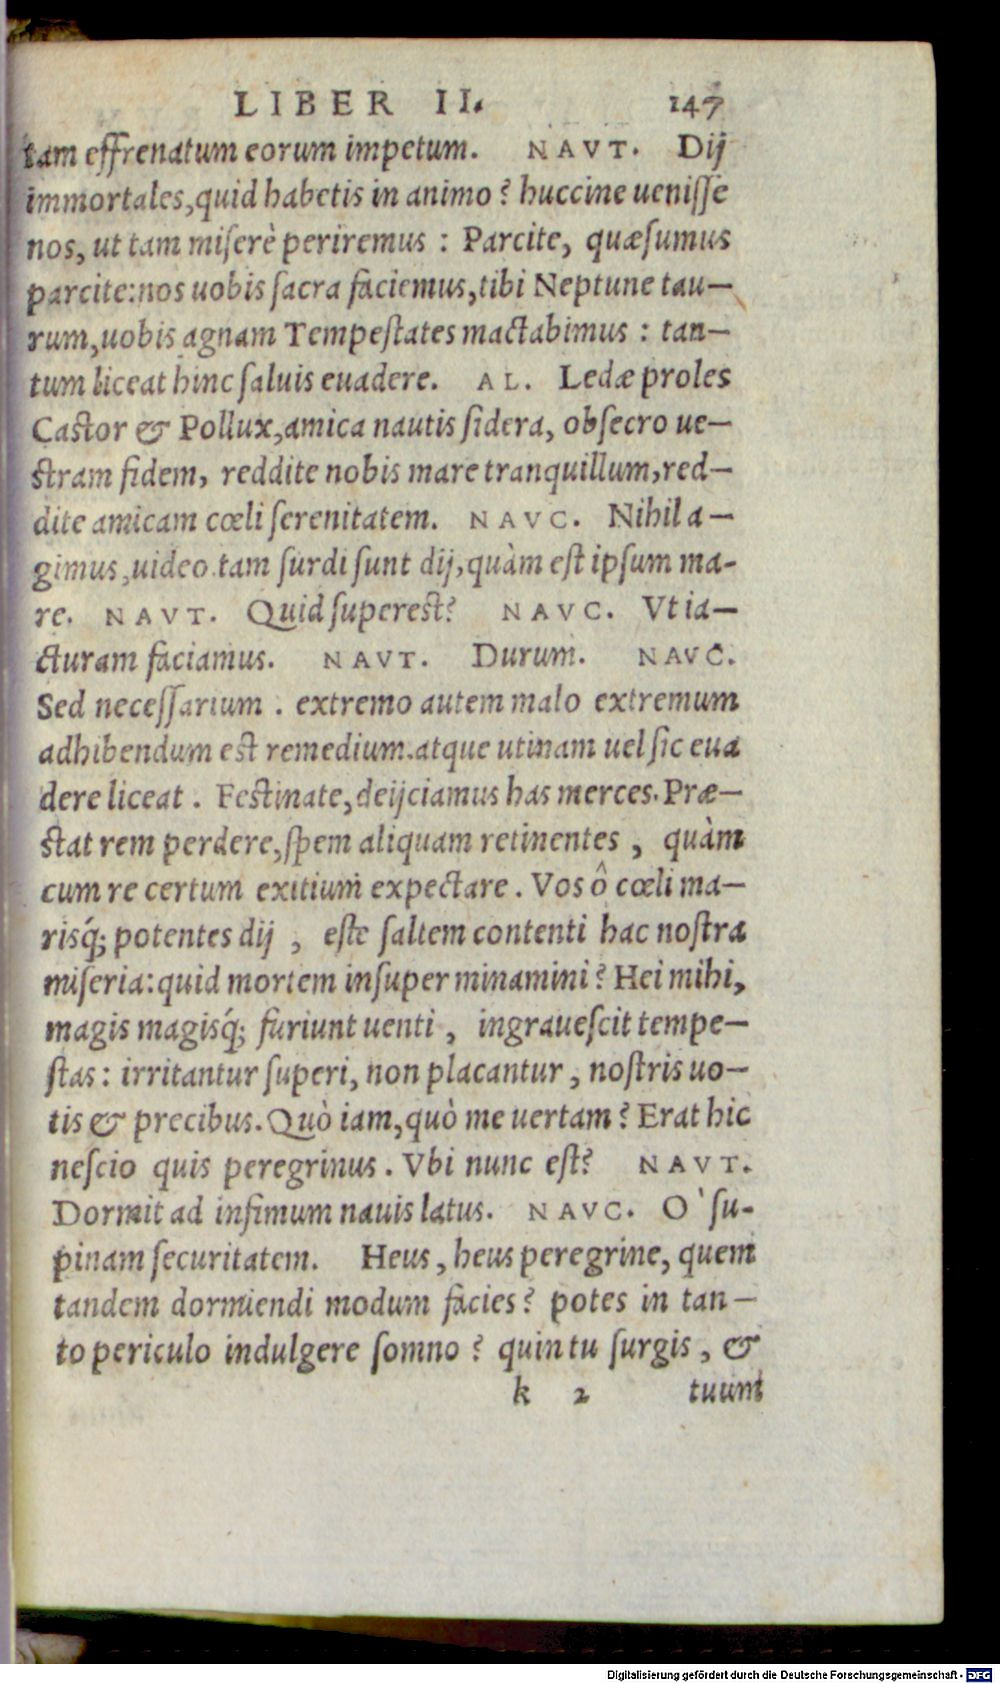 LIBER II. 147
tam effrenatum eorum impetum. NAVT. Dij
immortales,quid habetis in animo? huccine uenisse
nos, ut tam miserè periremus: Parcite, quæsumus
parcite:nos uobis sacra faciemus,tibi Neptune tau-
rum,uobis agnam Tempestates mactabimus: tan-
tum liceat hinc saluis euadere. AL. Ledæ proles
Castor & Pollux,amica nautis sidera, obsecro ue-
stram fidem, reddite nobis mare tranquillum,red-
dite amicam cœli serenitatem. NAVC. Nihil a-
gimus,uideo tam surdi sunt dij,quàm est ipsum ma-
re. NAVT. Quid superest? NAVC. Vt ia-
cturam faciamus. NAVT. Durum. NAVC.
Sed necessarium. extremo autem malo extremum
adhibendum est remedium.atque utinam uel sic eua
dere liceat. Festinate,deijciamus has merces.Præ-
stat rem perdere,spem aliquam retinentes, quàm
cum re certum exitium expectare. Vos ô cœli ma-
risq́; potentes dij, este saltem contenti hac nostra
miseria:quid mortem insuper minamini? Hei mihi,
magis magisq́; furiunt uenti, ingrauescit tempe-
stas: irritantur superi, non placantur, nostris uo-
tis & precibus.Quò iam,quò me uertam? Erat hic
nescio quis peregrinus. Vbi nunc est? NAVT.
Dormit ad infimum nauis latus. NAVC. O` su-
pinam securitatem. Heus, heus peregrine, quem
tandem dormiendi modum facies? potes in tan-
to periculo indulgere somno? quin tu surgis, &
k 2 tuum
Digitalisierung gefördert durch die Deutsche Forschungsgemeinschaft - DFG